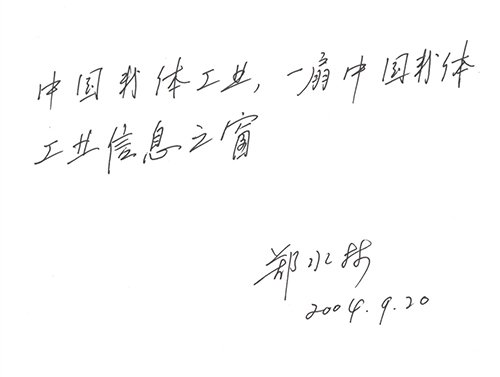 中国粉体工业,一扇中国粉体
工业信息之窗
郑水林
2004.9.20